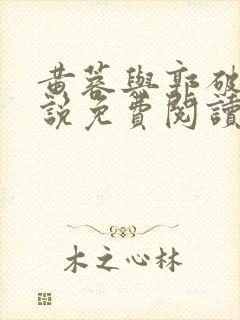 黄蓉與郭破
說免費閱讀
木之心林